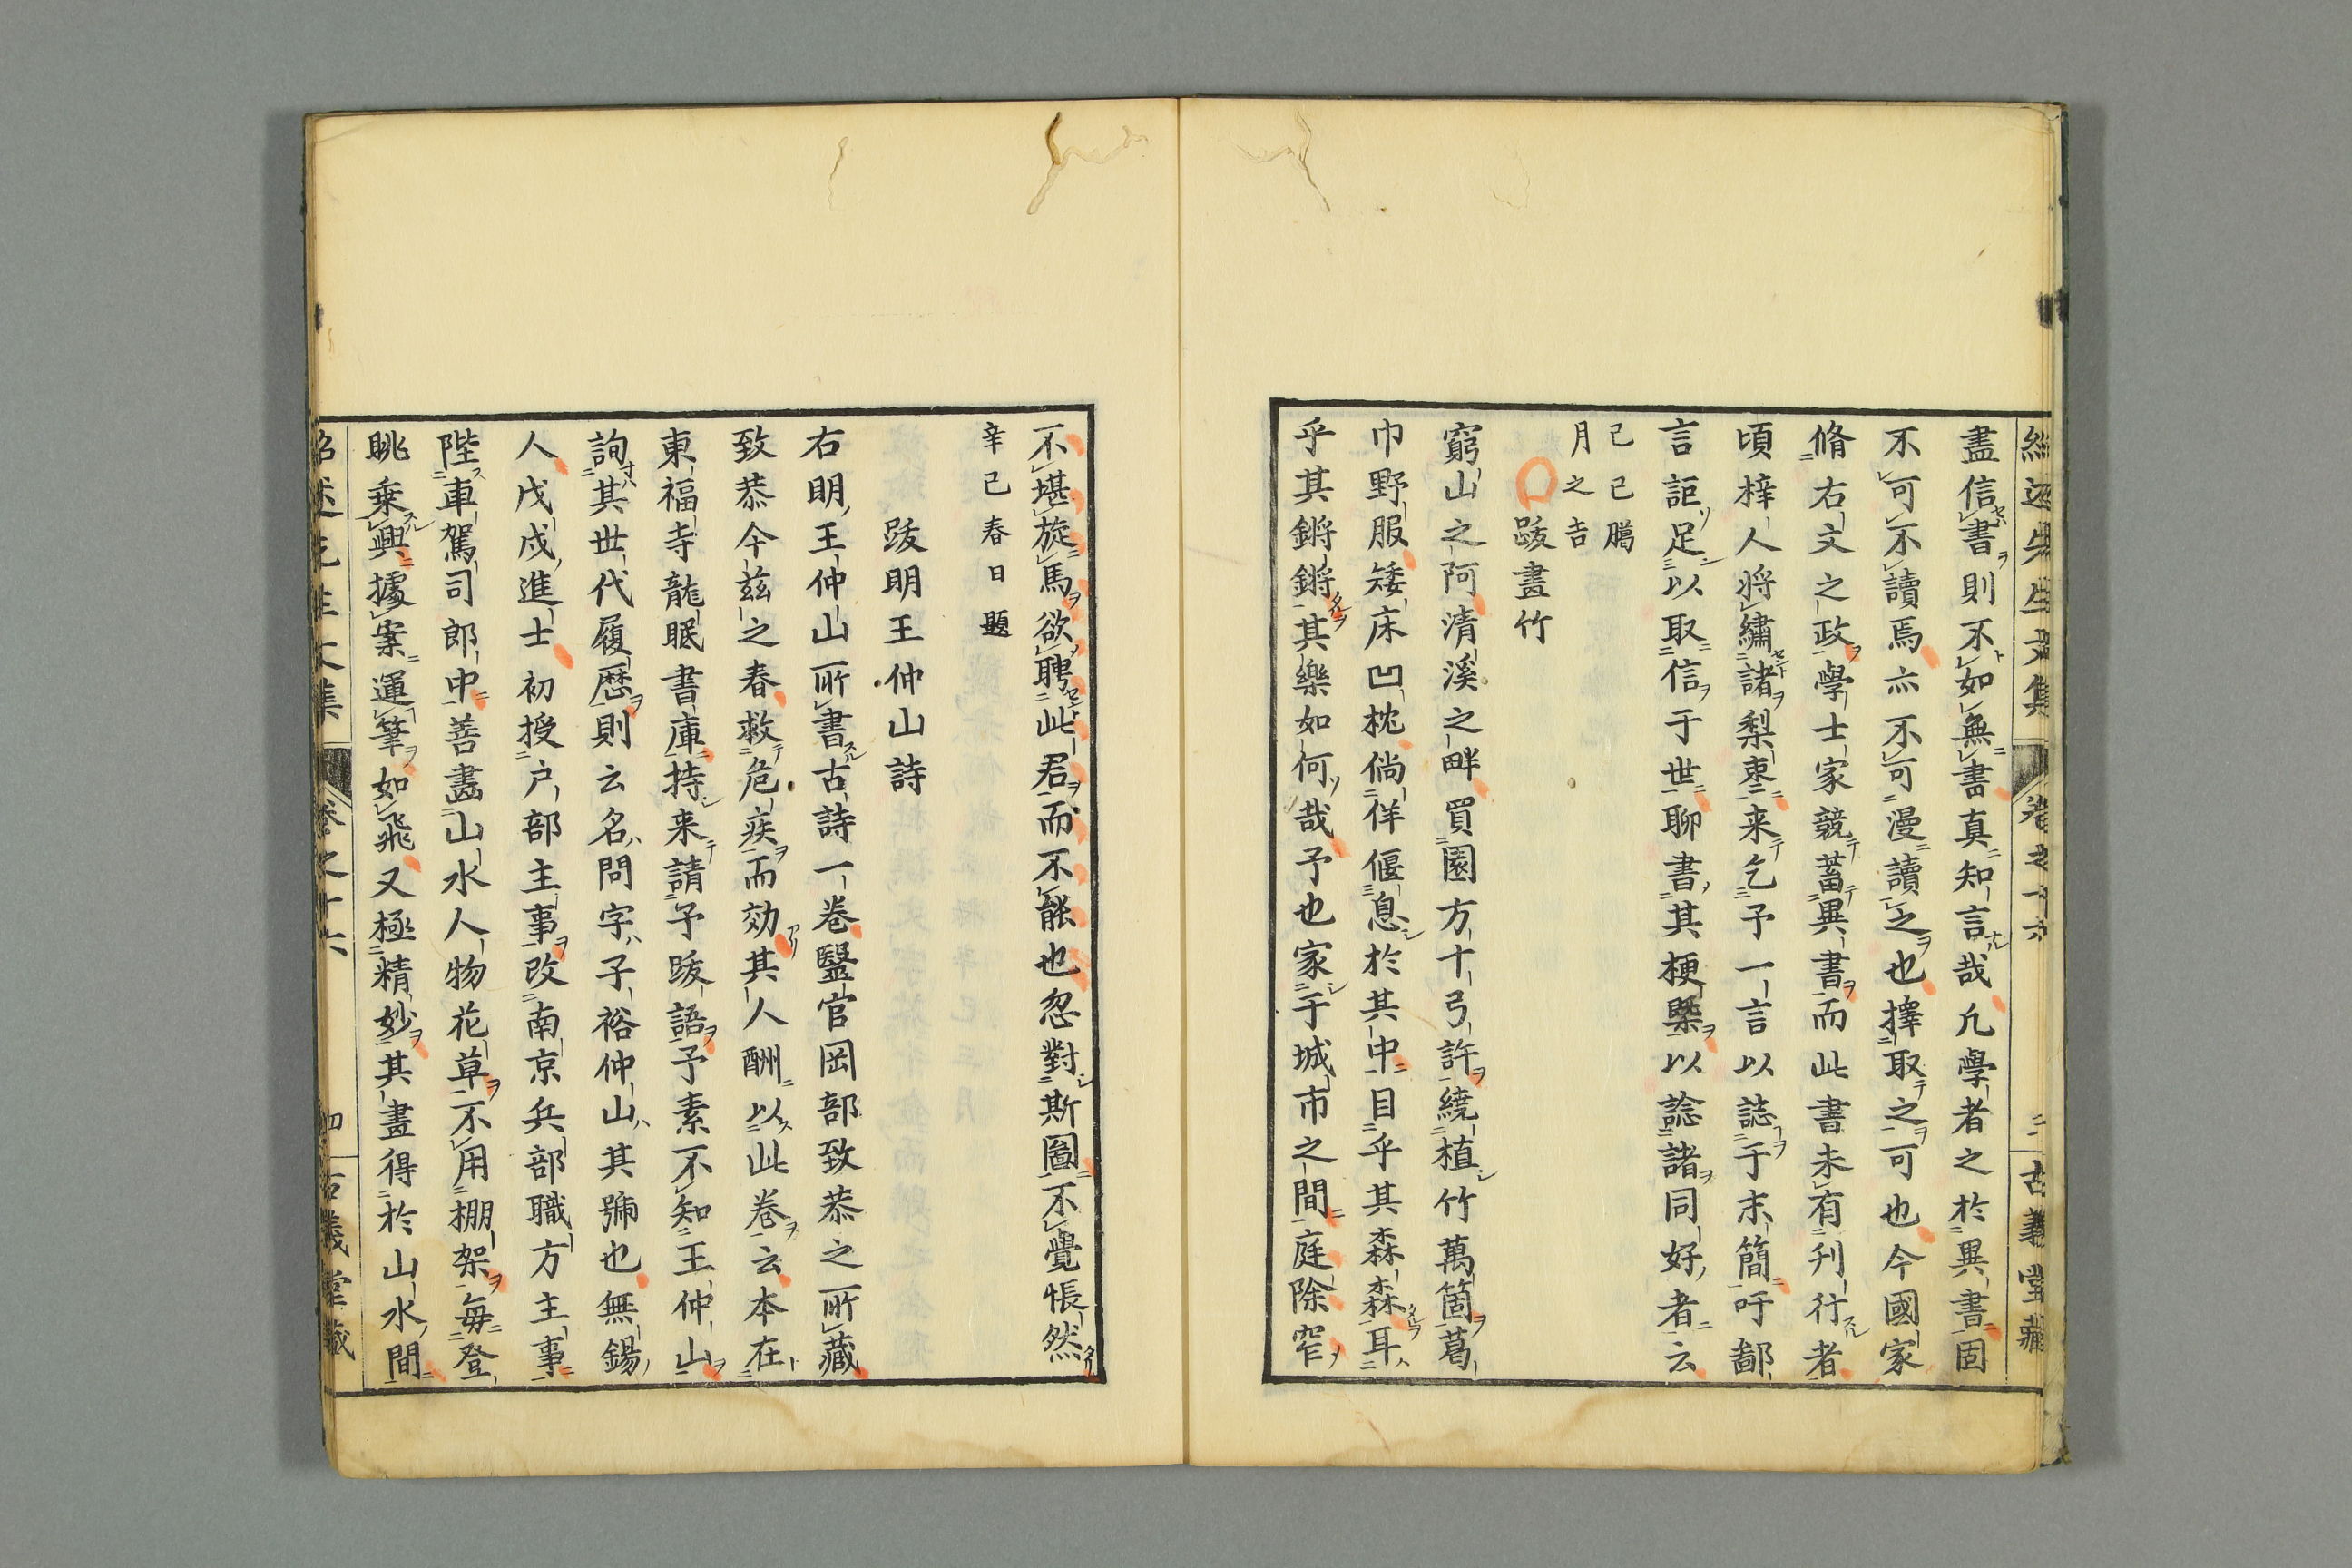 紹述先生文集 卷之十六 三 古義堂藏
盡信書則不如無書真知言哉凡學者之於異書固
不可不讀焉亦不可漫讀之也擇取之可也今國家
脩右文之政學士家競蓄異書而此書未有刋行者
頃梓人將繡諸梨棗来乞予一言以誌于末簡吁鄙
言詎足以取信于世聊書其梗槩以諗諸同好者云
己巳臈
月之吉
跋畫竹
窮山之阿清溪之畔買園方十弓許繞植竹萬箇葛
巾野服矮床凹枕倘佯偃息於其中目乎其森森耳
乎其鏘鏘其樂如何哉予也家于城市之間庭除窄
不堪旋馬欲聘此君而不能也忽對斯圖不覺悵然
辛巳春日題
跋明王仲山詩
右明王仲山所書古詩一卷毉官岡部致恭之所藏
致恭今茲之春救危疾而効其人酬以此卷云本在
東福寺龍眠書庫持来請予跋語予素不知王仲山
詢其世代履歷則云名問字子裕仲山其號也無錫
人戊戌進士初授户部主事改南京兵部職方主事
陛車駕司郎中善畵山水人物花草不用棚架每登
眺乗興據案運筆如飛又極精妙其畫得於山水間
紹述先生文集 卷之十六 四 古義堂藏